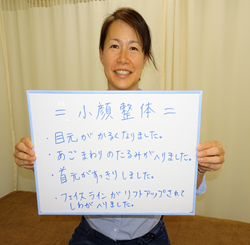 = 小顔整体 =
・目元がかるくなりました。
・あごまわりのたるみが入りました。
・首元がすっきりしました。
・フェイスラインがリフトアップされて
しわが入りました。